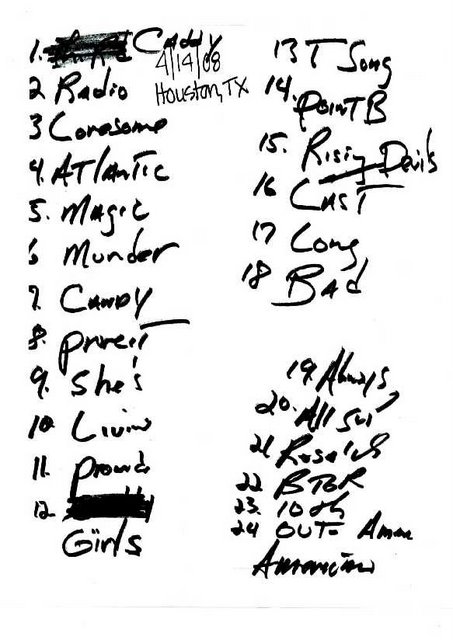 1. Caddy
4/14/08
Houston, TX
2 Radio
3 Lonesome
4. ATLANTIC
5. Magic
6 Murder
7. CANDY
8. Prove iT
9. She's
10. Livin
11. Promis
12.
Girls
13 T Song
14.
POINT B
15. Rising Devils
16 CAST
17 Long
18 Bad
19. Always
20. All
21
22
23. 10th
24 OUT-
American